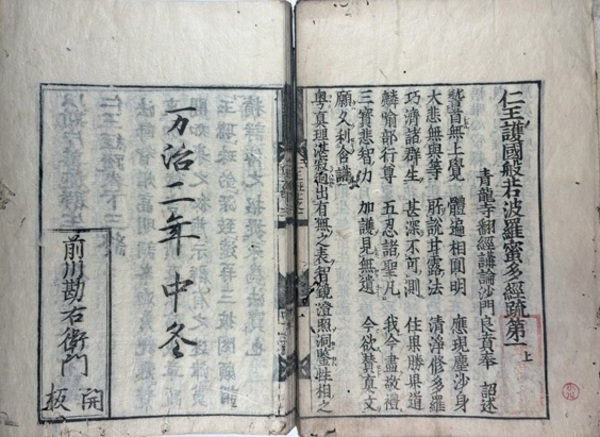 仁王護國般若波羅蜜多經疏第一上
青龍寺翻經講論沙門良賁奉 詔述
稽首無上覺 體遍相圓明 應現塵沙身
大悲無與等 所說甘露法 清淨修多羅
巧濟諸群生 甚深不可測 住果勝果道
麟喻部行尊 五忍諸聖凡 我今盡敬禮
三寶悲智力 加護見無遺 今欲贊真文
願久利含識
粵真理湛寂逈出有無之表智鏡澄照洞鑒性相之
万治二年中冬
前川勘右衛門
開板